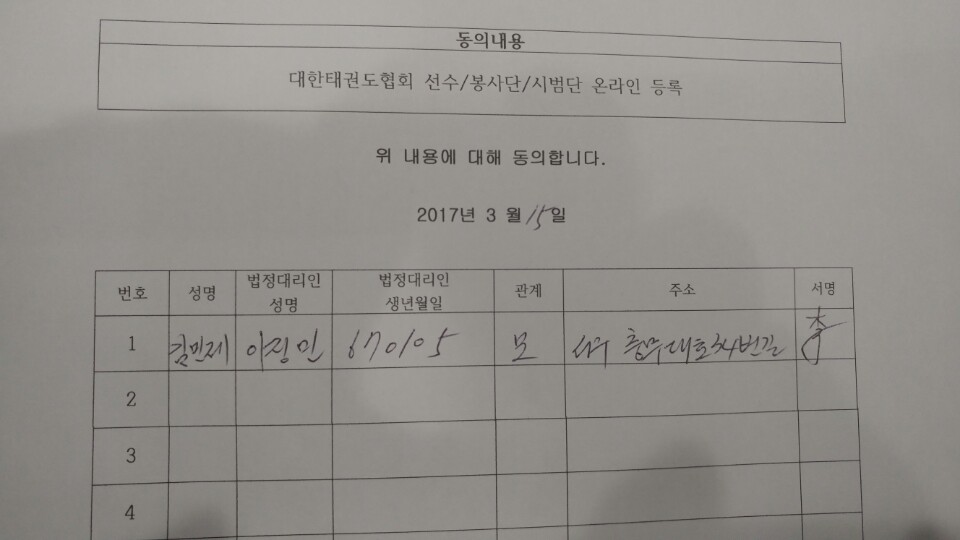 동의내용
대한태권도협회 선수/봉사단/시범단 온라인 등록
위 내용에 대해 동의합니다.
2017년 3 월 15일
번호 성명 법정대리인 성명 법정대리인 생년월일 관계 주소 서명
1 김민제 670105 모 서구 대로 번길
2
3
4